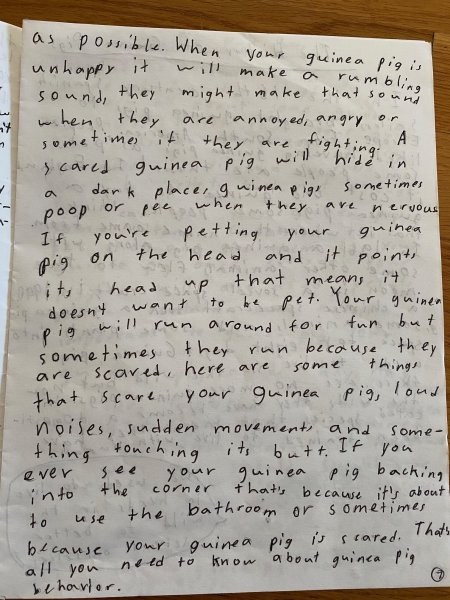 as possible. When your guinea pig is
unhappy it will make a rumbling
sound, they might make that sound
when they are annoyed, angry or
sometimes if they are fighting. A
scared guinea pig will hide in
a dark place, guinea pigs sometimes
poop or pee when they are nervous
If you're petting your guinea
pig on the head and it points
its head up that means it
doesn't want to be pet. Your guinea
pig will run around for fun but
sometimes they run because they
are scared, here are some things
that scare your guinea pig, loud
noises, sudden movements and some-
thing touching its butt. If you
ever see your guinea pig backing
into the corner that's because it's about
to use the bathroom or sometimes
because your guinea pig is scared. That's
all you need to know about guinea pig
behavior.
7